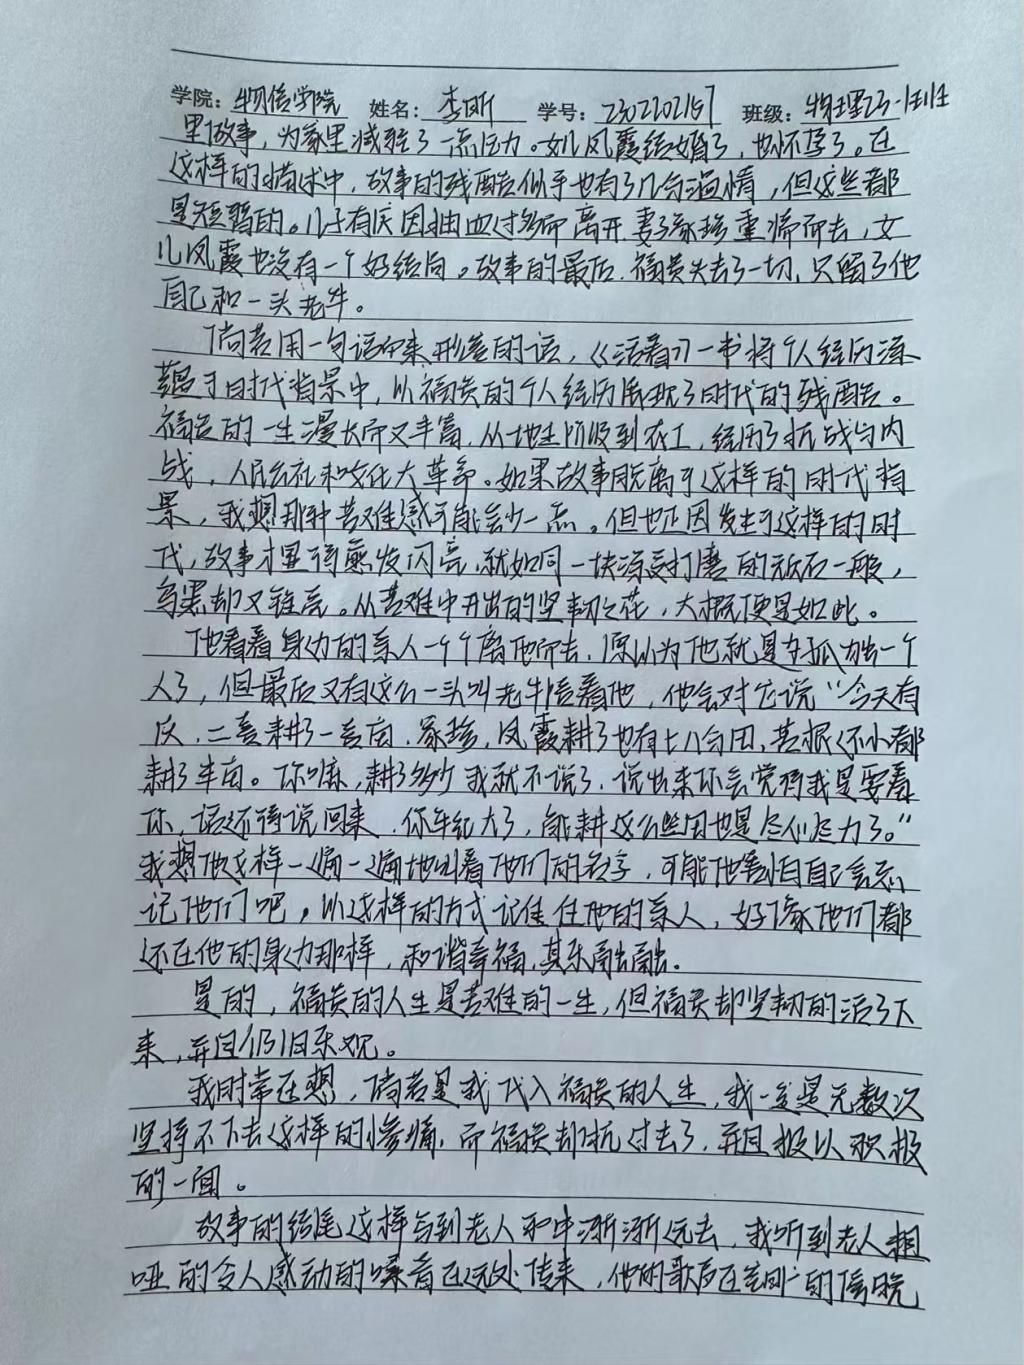 学院：物信学院 姓名：李昕 学号： 班级：物理23-1班
里做事，为家里减轻了一点压力。女儿凤霞结婚了，也怀孕了。在
这样的描述中，故事的残酷似乎也有了几分温情，但这些都
是短暂的。儿子有庆因抽血过多而离开 妻子家珍重病而去，女
儿凤霞也没有一个好结局。故事的最后，福贵失去了一切，只留了他
自己和一头老牛。
倘若用一句话来形容的话，《活着》一书将个人经历深
于时代背景中，以福贵的个人经历展现了时代的残酷。
福贵的一生漫长而又丰富，从地主阶级到农工，经历了抗战与内
战，人民公社和文化大革命。如果故事脱离了这样的时代背
景，我想那种苦难感可能会少一点。但也正因发生于这样的时
代，故事才显得熠发闪亮，就如同一块深受打磨的顽石一般，
乌黑却又锃亮。从苦难中开出的坚韧之花，大概便是如此。
他看着身边的亲人一个个离他而去，原以为他就是孤独一个
人了，但最后又有这么一头叫老牛陪着他，他会对它说“今天有
庆，二喜耕了一亩，家珍，凤霞耕了也有七八分田，苦根还小都
耕了半亩。你嘛，耕了多少我就不说了，说出来你会觉得我是要羞
你，话还得说回来，你年纪大了，能耕这么些田也是尽心尽力了。”
我想他这样一遍一遍地叫着他们的名字，可能他害怕自己会忘
记他们吧，以这样的方式记住他的亲人，好像他们都
还在他的身边那样，和谐幸福，其乐融融。
是的，福贵的人生是苦难的一生，但福贵却坚韧的活了下
来，并且仍旧乐观。
我时常在想，倘若是我代入福贵的人生，我一定是无数次
坚持不下去这样的惨痛，而福贵却抗过去了，并且报以积极
的一面。
故事的结尾这样写到老人和牛渐渐远去，我听到老人粗
哑的令人感动的嗓音在远处传来，他的歌声在空旷的傍晚